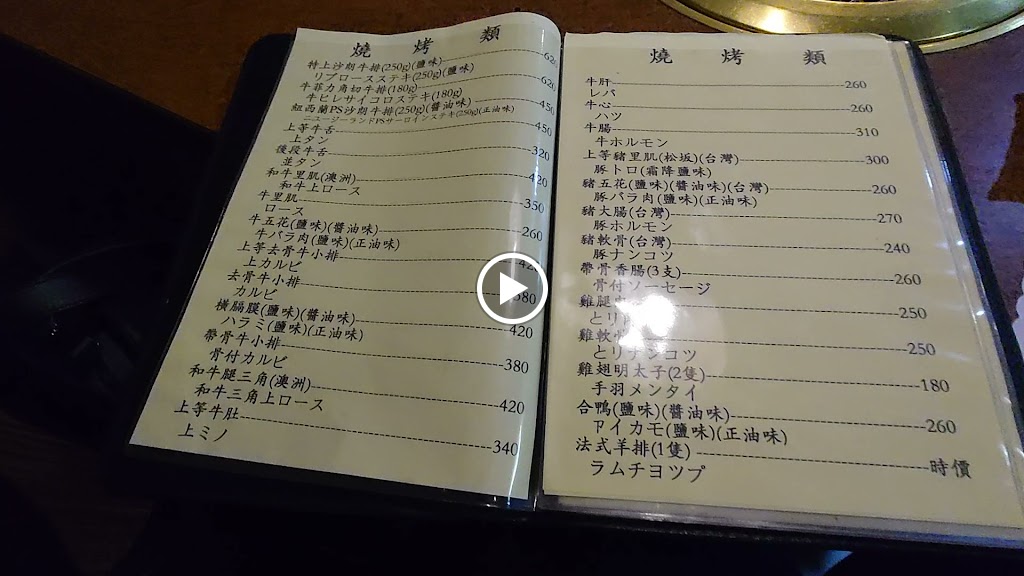 燒 烤 類
特上沙朗牛排(250g)(鹽味)---620
リブロースステキ(250g)(鹽味)
牛菲力角切牛排(180g)---620
牛ヒレサイコロステキ(180g)
紐西蘭PS沙朗牛排(250g)(醬油味)---450
ニュージーランドPSサーロインステキ(250g)(正油味)
上等牛舌---450
上タン
後段牛舌---320
並タン
和牛里肌(澳洲)---420
和牛上ロース
牛里肌---350
ロース
牛五花(鹽味)(醬油味)---260
牛バラ肉(鹽味)(正油味)
上等去骨牛小排---420
上カルビ
去骨牛小排---380
カルビ
橫膈膜(鹽味)(醬油味)---420
ハラミ(鹽味)(正油味)
帶骨牛小排---380
骨付カルビ
和牛腿三角(澳洲)---420
和牛三角上ロース
上等牛肚---340
上ミノ
燒 烤 類
牛肝---260
レバ
牛心---260
ハツ
牛腸---310
牛ホルモン
上等豬里肌(松坂)(台灣)---300
豚トロ(霜降鹽味)
豬五花(鹽味)(醬油味)(台灣)---260
豚バラ肉(鹽味)(正油味)
豬大腸(台灣)---270
豚ホルモン
豬軟骨(台灣)---240
豚ナンコツ
帶骨香腸(3支)---260
骨付ソーセージ
雞腿---250
とり
雞軟---250
とりナンコツ
雞翅明太子(2隻)---180
手羽メンタイ
合鴨(鹽味)(醬油味)---260
アイカモ(鹽味)(正油味)
法式羊排(1隻)---時價
ラムチヨツプ